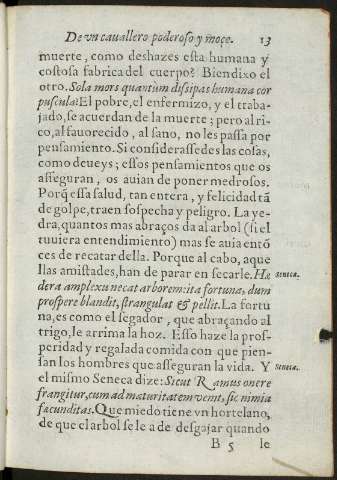 De vn cauallero poderoso y moço. 13
muerte, como deshazes esta humana y
costosa fabrica del cuerpo? Bien dixo el
otro. Sola mors quantum dissipas humana cor
puscula: El pobre, el enfermizo, y el traba-
jado, se acuerdan de la muerte; pero al ri-
co, al fauorecido, al sano, no les passa por
pensamiento. Si considerassedes las cosas,
como deueys; essos pensamientos que os
asseguran, os auian de poner medrosos.
Porq̃ essa salud, tan entera, y felicidad tã
de golpe, traen sospecha y peligro. La ye-
dra, quantos mas abraços da al arbol (si el
tuuiera entendimiento) mas se auia entõ
ces de recatar della. Porque al cabo, aque
llas amistades, han de parar en secarle. Hæ
Seneca.
dera amplexu necat arborem: ita fortuna, dum
prospere blandit, strangulat & pellit. La fortu
na, es como el segador, que abraçando al
trigo, le arrima la hoz. Esso haze la pros-
peridad y regalada comida con que pien-
san los hombres que asseguran la vida. Y
Seneca.
el mismo Seneca dize: Sicut Ramus onere
frangitur, cum ad maturitatem venit, sic nimia
facunditas. Que miedo tiene vn hortelano,
de que el arbol se le a de desgajar quando
B 5 le